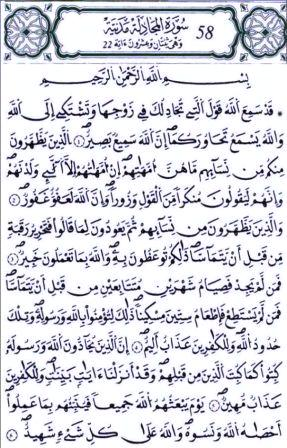 58 سُورَةُ الْمُجَادِلَةِ مَدَنِيَّة
وَهِيَ ثِنْتَانِ وَعِشْرُونَ ءَايَة 22
بِسْمِ اللَّهِ الرَّحْمَٰنِ الرَّحِيمِ
قَدْ سَمِعَ اللَّهُ قَوْلَ الَّتِي تُجَادِلُكَ فِي زَوْجِهَا وَتَشْتَكِي إِلَى اللَّهِ
وَاللَّهُ يَسْمَعُ تَحَاوُرَكُمَا إِنَّ اللَّهَ سَمِيعٌ بَصِيرٌ ١ الَّذِينَ يَظَّهَّرُونَ
مِنكُم مِّن نِّسَآئِهِم مَّا هُنَّ أُمَّهَٰتِهِمْ إِنْ أُمَّهَٰتُهُمْ إِلَّا الَّٰٓـِٔي وَلَدْنَهُمْ
وَإِنَّهُمْ لَيَقُولُونَ مُنكَرًا مِّنَ الْقَوْلِ وَزُورًا وَإِنَّ اللَّهَ لَعَفُوٌّ غَفُورٌ ٢
وَالَّذِينَ يَظَّهَّرُونَ مِن نِّسَآئِهِمْ ثُمَّ يَعُودُونَ لِمَا قَالُوا فَتَحْرِيرُ رَقَبَةٍ
مِّن قَبْلِ أَنْ يَّتَمَآسَّا ذَٰلِكُمْ تُوعَظُونَ بِهِ وَاللَّهُ بِمَا تَعْمَلُونَ خَبِيرٌ ٣
فَمَن لَّمْ يَجِدْ فَصِيَامُ شَهْرَيْنِ مُتَتَابِعَيْنِ مِن قَبْلِ أَنْ يَّتَمَآسَّا
فَمَن لَّمْ يَسْتَطِعْ فَإِطْعَامُ سِتِّينَ مِسْكِينًا ذَٰلِكَ لِتُؤْمِنُوا بِاللَّهِ وَرَسُولِهِ وَتِلْكَ
حُدُودُ اللَّهِ وَلِلْكَٰفِرِينَ عَذَابٌ أَلِيمٌ ٤ إِنَّ الَّذِينَ يُحَآدُّونَ اللَّهَ وَرَسُولَهُ
كُبِتُوا كَمَا كُبِتَ الَّذِينَ مِن قَبْلِهِمْ وَقَدْ أَنزَلْنَآ ءَايَٰتٍ بَيِّنَٰتٍ وَلِلْكَٰفِرِينَ
عَذَابٌ مُّهِينٌ ٥ يَوْمَ يَبْعَثُهُمُ اللَّهُ جَمِيعًا فَيُنَبِّئُهُم بِمَا عَمِلُوا
أَحْصَىٰهُ اللَّهُ وَنَسُوهُ وَاللَّهُ عَلَىٰ كُلِّ شَيْءٍ شَهِيدٌ ٦